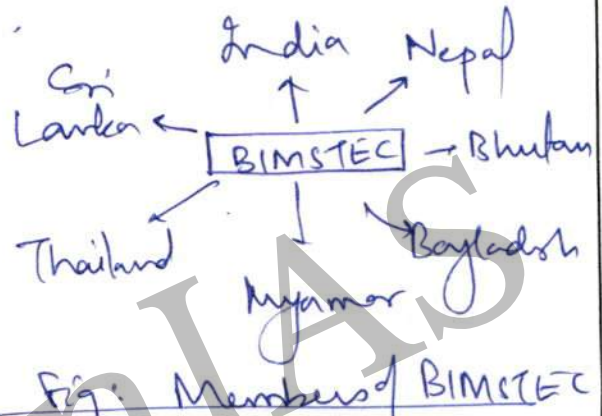 India Nepal
Sri
Lanka
BIMSTEC Bhutan
Thailand Bangladesh
Myanmar
Fig: Members of BIMSTEC
IAS